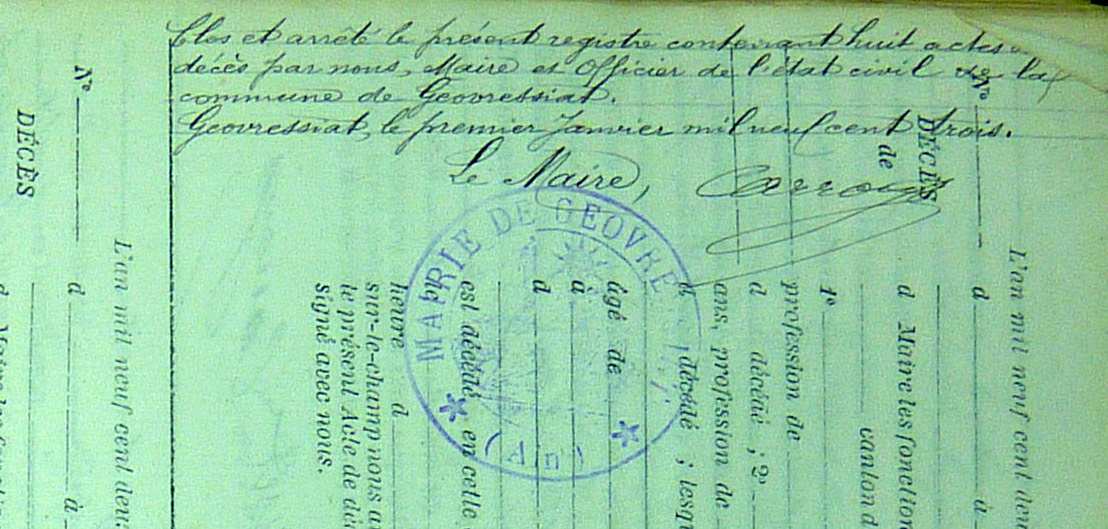 Clos et arrêté le présent registre contenant huit actes
décès par nous, Maire et Officier de l'état civil de la
commune de Geovressiat.
Geovressiat, le premier Janvier mil neuf cent trois.
Le Maire,
MAIRIE DE GEOVRE
(Ain)
L'an mil neuf cent
DÉCÈS
de
N°
d
à
d Maire les fonctio
canton d
1°
profession de
d décédé ; 2°
ans, profession de
d décédé ; lesq
âgé de
à
d
est décédé en cette
heure d
sur-le-champ nous a
le présent Acte de dé
signé avec nous.
N°
DÉCÈS
L'an mil neuf cent deux
d
à